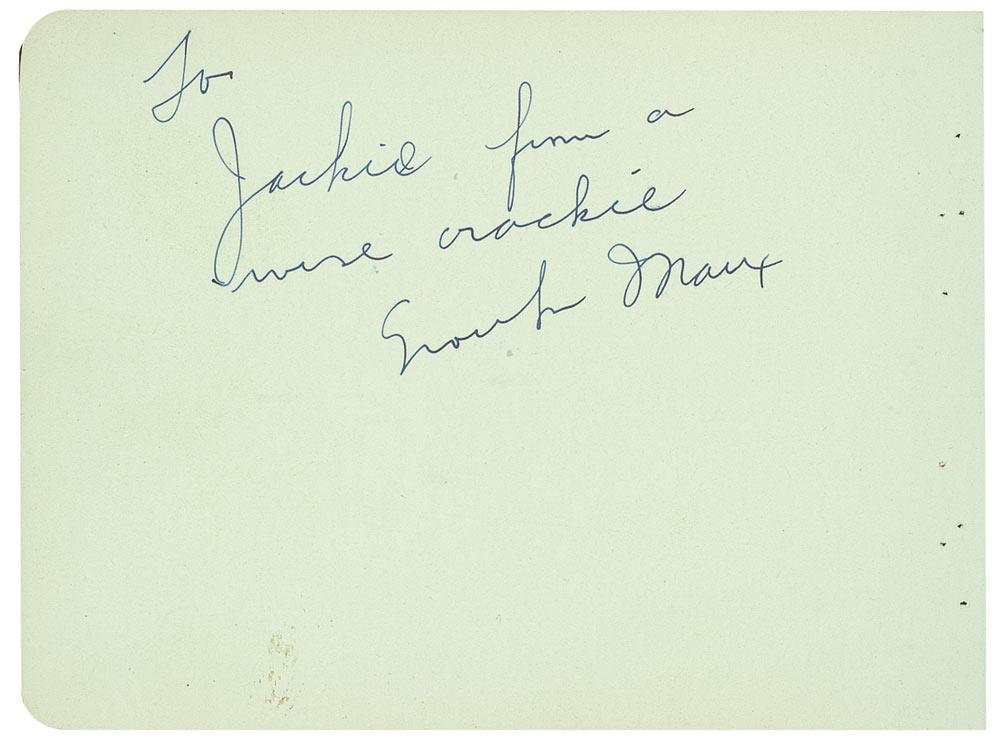 To
Jackie from a
wise crackie
Groucho Marx